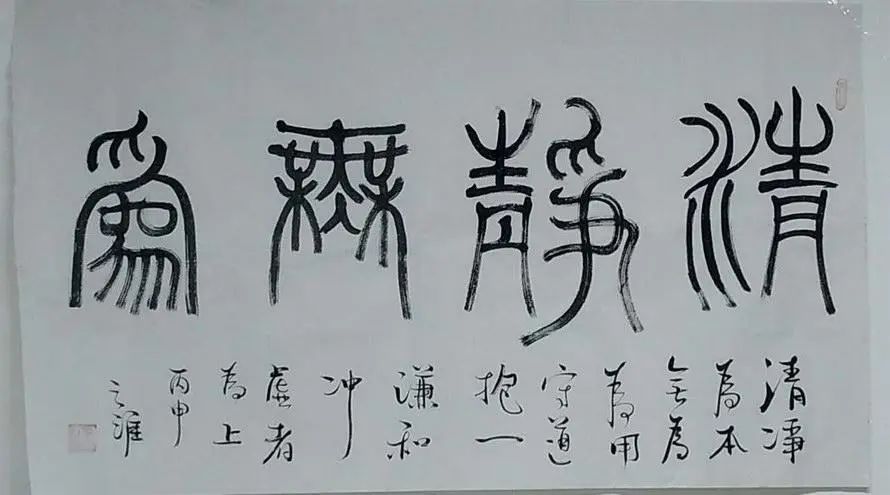 清靜無為
清凈
為本
無為
為用
守道
抱一
謙和
冲
虛者
為上
丙申
之